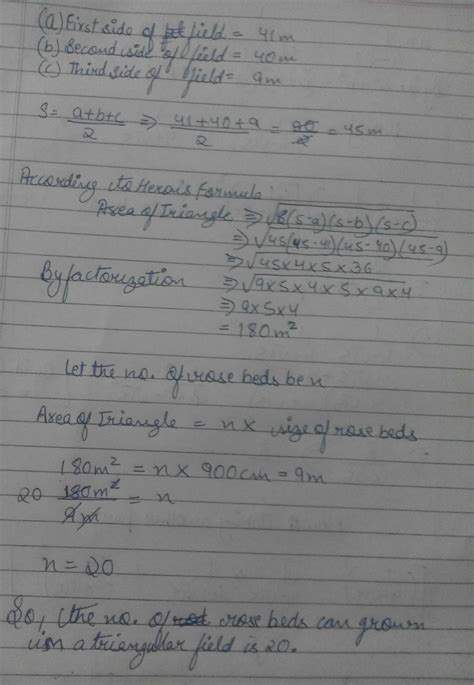 (a) First side of field = 41m
(b) Second side of field = 40m
(c) Third side of field = 9m
S = a+b+c/2 ⇒ 41+40+9/2 = 90/2 = 45m
According to Heron's Formula
Area of Triangle ⇒ √s(s-a)(s-b)(s-c)
⇒ √45(45-41)(45-40)(45-9)
⇒ √45×4×5×36
By factorization ⇒ √9×5×4×5×9×4
⇒ 9×5×4
= 180m²
Let the no. of rose beds be n
Area of Triangle = n × size of rose beds
180m² = n × 900cm = 9m
20 180m²/9m = n
n = 20
So, the no. of rose beds can grown
in a triangular field is 20.